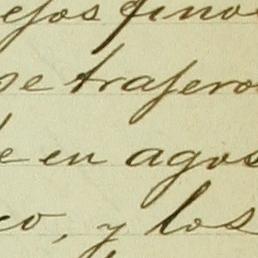 ejos finos
se trajero
e en agos
co, y los